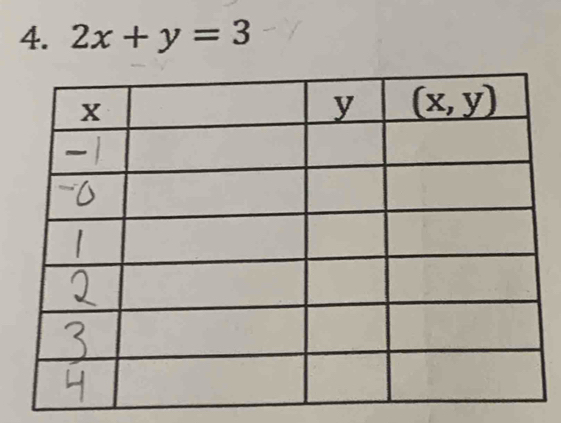 4. 2x + y = 3
x y (x, y)
-1
-0
1
2
3
4